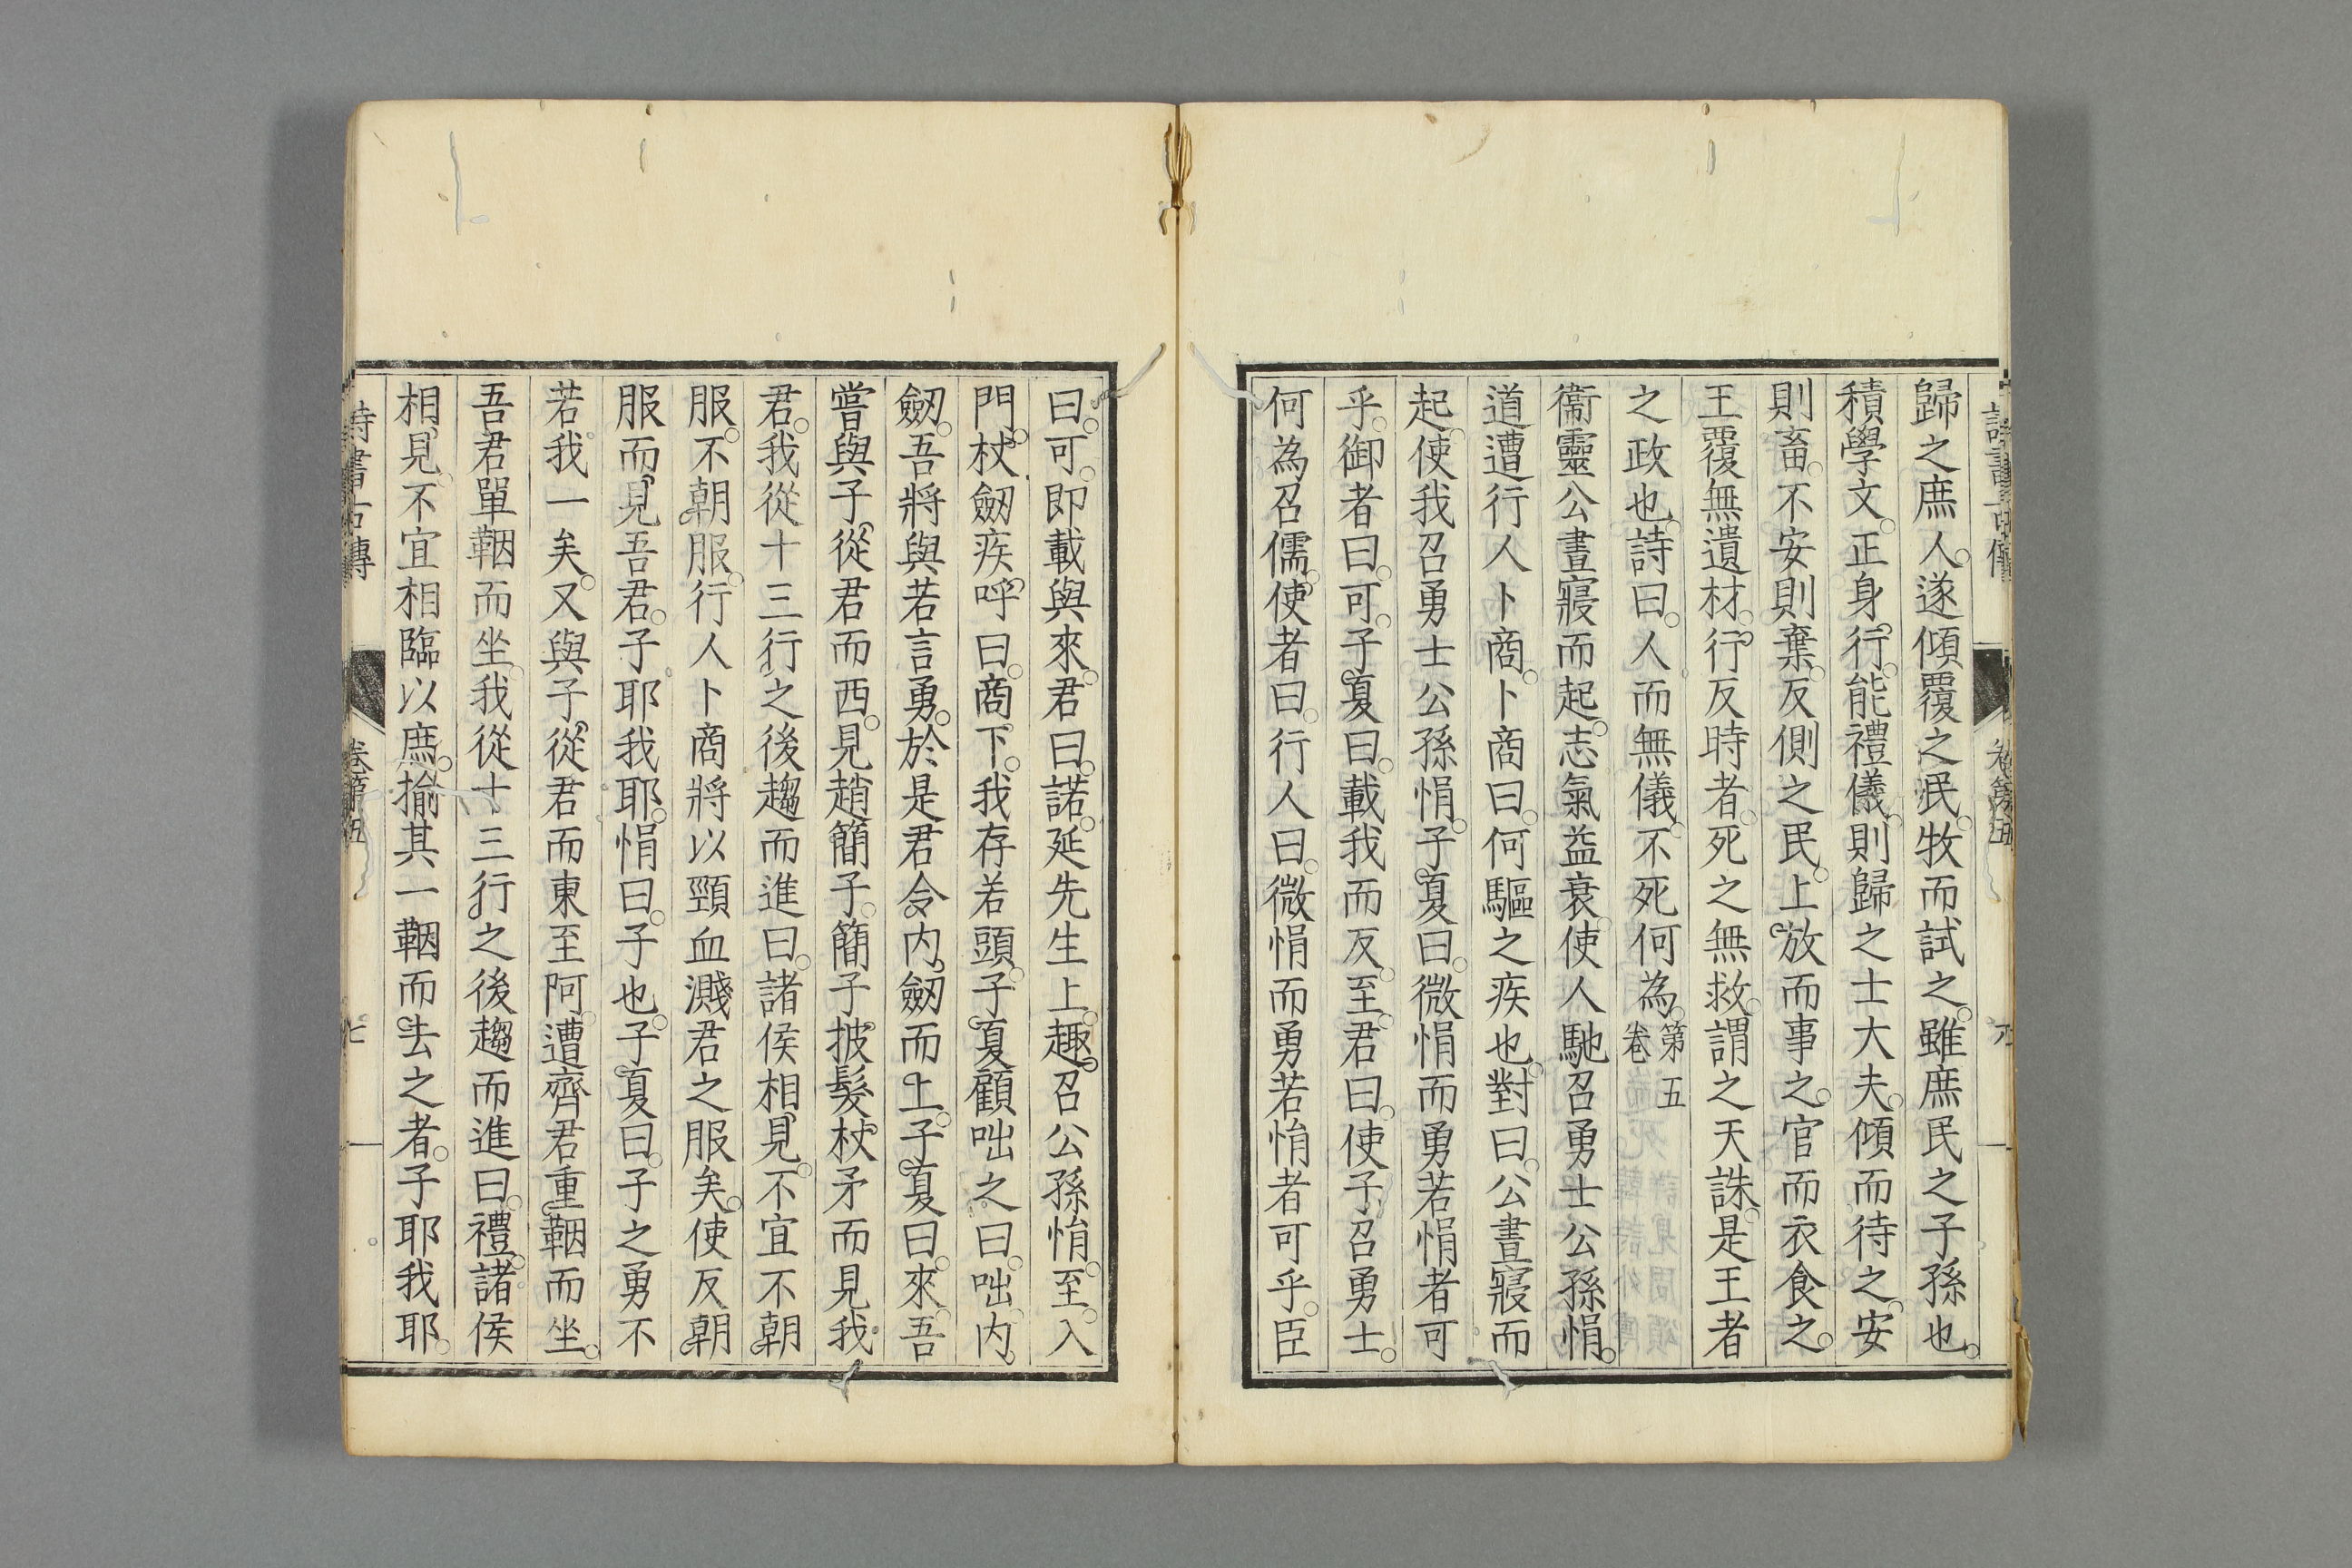 歸之庶人。遂傾覆之民。牧而試之。雖庶民之子孫也。
積學文。正身行。能禮儀。則歸之士大夫。傾而待之。安
則畜。不安則棄。反側之民。上放而事之。官而衣食之。
王覆無遺材。行反時者。死之無救。謂之天誅。是王者
之政也。詩曰。人而無儀。不死何為。第五卷
衞靈公晝寢而起。志氣益衰。使人馳召勇士公孫悁。
道遭行人卜商。卜商曰。何驅之疾也。對曰。公晝寢而
起。使我召勇士公孫悁。子夏曰。微悁而勇若悁者可
乎。御者曰。可。子夏曰。載我而反。至。君曰。使子召勇士。
何為召儒。使者曰。行人曰。微悁而勇若悁者可乎。臣
曰。可。即載與來。君曰。諾。延先生上。趣召公孫悁。至。入
門。杖劒疾呼曰。商下。我存若頭。子夏顧咄之曰。咄。内
劒。吾將與若言勇。於是君令内劒而上。子夏曰。來。吾
嘗與子從君而西。見趙簡子。簡子披髮杖矛而見我
君。我從十三行之後趨而進曰。諸侯相見。不宜不朝
服。不朝服。行人卜商將以頸血濺君之服矣。使反朝
服而見吾君。子耶我耶。悁曰。子也。子夏曰。子之勇不
若我一矣。又與子從君而東至阿。遭齊君重鞇而坐。
吾君單鞇而坐。我從十三行之後趨而進曰。禮。諸侯
相見。不宜相臨以庶。揄其一鞇而去之者。子耶我耶。
詩書古傳 卷第五 七